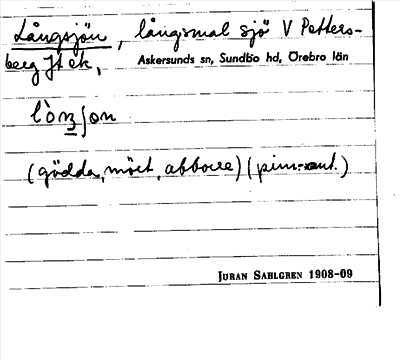 Långsjön, långsmal sjö V Petters-
berg Jt ek,
Askersunds sn, Sundbo hd, Örebro län
lòŋʃon
(gödda, mört, abborre) (
JURAN SAHLGREN 1908-09